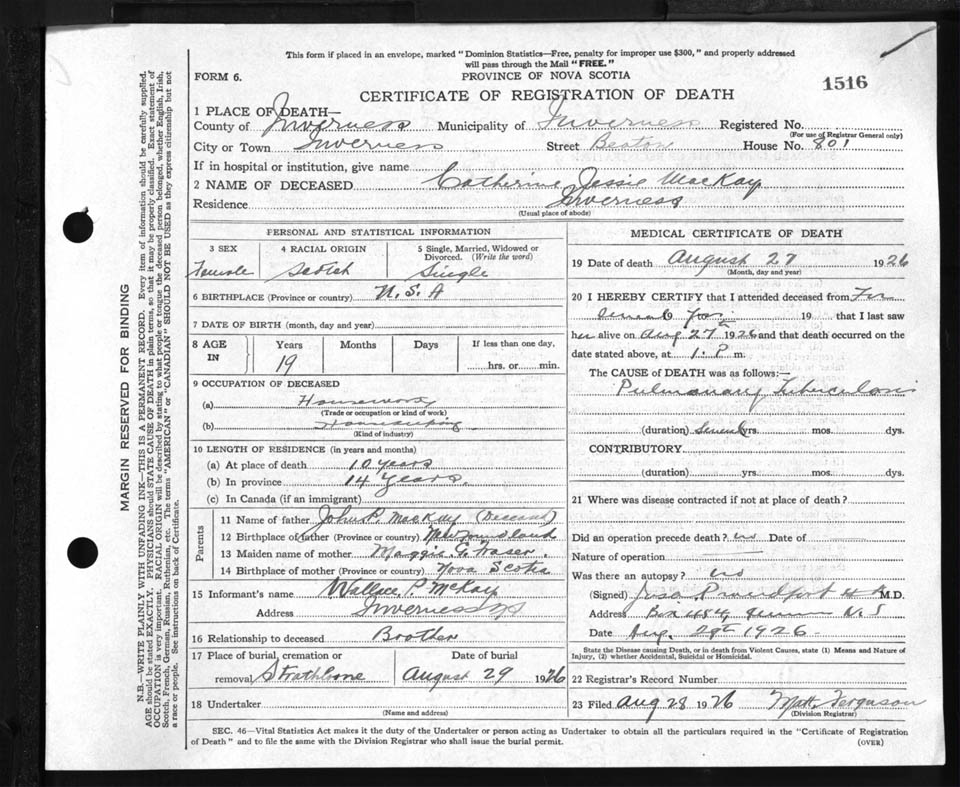 This form if placed in an envelope, marked "Dominion Statistics—Free, penalty for improper use $300," and properly addressed
will pass through the Mail "FREE."
FORM 6.
PROVINCE OF NOVA SCOTIA
1516
CERTIFICATE OF REGISTRATION OF DEATH
1 PLACE OF DEATH—
County of Inverness Municipality of Inverness Registered No.
(For use of Registrar General only)
City or Town Inverness Street Beaton House No. 801
If in hospital or institution, give name
2 NAME OF DECEASED Catherine Jessie MacKay
Residence Inverness
(Usual place of abode)
PERSONAL AND STATISTICAL INFORMATION
3 SEX 4 RACIAL ORIGIN 5 Single, Married, Widowed or
Divorced. (Write the word)
Female Scotch Single
6 BIRTHPLACE (Province or country) U.S.A
7 DATE OF BIRTH (month, day and year)
8 AGE IN Years Months Days If less than one day,
19 hrs. or min.
9 OCCUPATION OF DECEASED
(a) Housework
(Trade or occupation or kind of work)
(b) Housekeeping
(Kind of industry)
10 LENGTH OF RESIDENCE (in years and months)
(a) At place of death 10 years
(b) In province 14 years.
(c) In Canada (if an immigrant)
Parents
11 Name of father John P. MacKay (Deceased)
12 Birthplace of father (Province or country) Newfoundland
13 Maiden name of mother Maggie C. Fraser.
14 Birthplace of mother (Province or country) Nova Scotia
15 Informant's name Wallace P. McKay
Address Inverness NS
16 Relationship to deceased Brother
17 Place of burial, cremation Date of burial
or removal Strathlorne August 29 1926
18 Undertaker
(Name and address)
MEDICAL CERTIFICATE OF DEATH
19 Date of death August 27 1926
(Month, day and year)
20 I HEREBY CERTIFY that I attended deceased from For
several 19 that I last saw
her alive on Aug 27th 1926 and that death occurred on the
date stated above, at 1. P m.
The CAUSE of DEATH was as follows:—
Pulmonary Tuberculosis
(duration) Several yrs. mos. dys.
CONTRIBUTORY
(duration) yrs. mos. dys.
21 Where was disease contracted if not at place of death?
Did an operation precede death? no Date of
Nature of operation
Was there an autopsy? no
(Signed) Proudfoot M.D.
Address Box 484, N. S
Date Aug. 29th 1926
State the Disease causing Death, or in death from Violent Causes, state (1) Means and Nature of
Injury, (2) whether Accidental, Suicidal or Homicidal.
22 Registrar's Record Number
23 Filed Aug 28 1926 Matt. Ferguson
(Division Registrar)
SEC. 46—Vital Statistics Act makes it the duty of the Undertaker or person acting as Undertaker to obtain all the particulars required in the "Certificate of Registration
of Death" and to file the same with the Division Registrar who shall issue the burial permit.
(OVER)
MARGIN RESERVED FOR BINDING
N.B.—WRITE PLAINLY WITH UNFADING INK—THIS IS A PERMANENT RECORD. Every item of information should be carefully supplied.
AGE should be stated EXACTLY. PHYSICIANS should STATE CAUSE OF DEATH in plain terms, so that it may be properly classified. Exact statement of
OCCUPATION is very important. RACIAL ORIGIN will be described by stating to what people or tongue the deceased person belonged, whether English, Irish,
Scotch, French, German, Russian, Ruthenian, etc. The terms "AMERICAN" or "CANADIAN" SHOULD NOT BE USED as they express citizenship but not
a race or people. See instructions on back of Certificate.